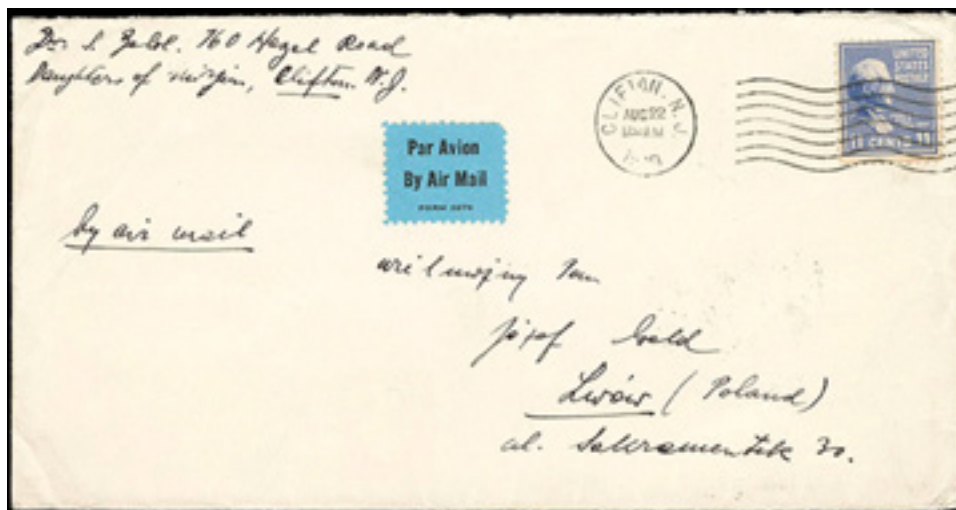 Dr. S. 760 Hazel Road
Daughters of, Clifton N.J.
CLIFTON. N. J.
AUG 22
UNITED
STATES
POSTAGE
CENTS
Par Avion
By Air Mail
by air mail
Pan
Józef Gold
Lwów (Poland)
ul. Sakramentek